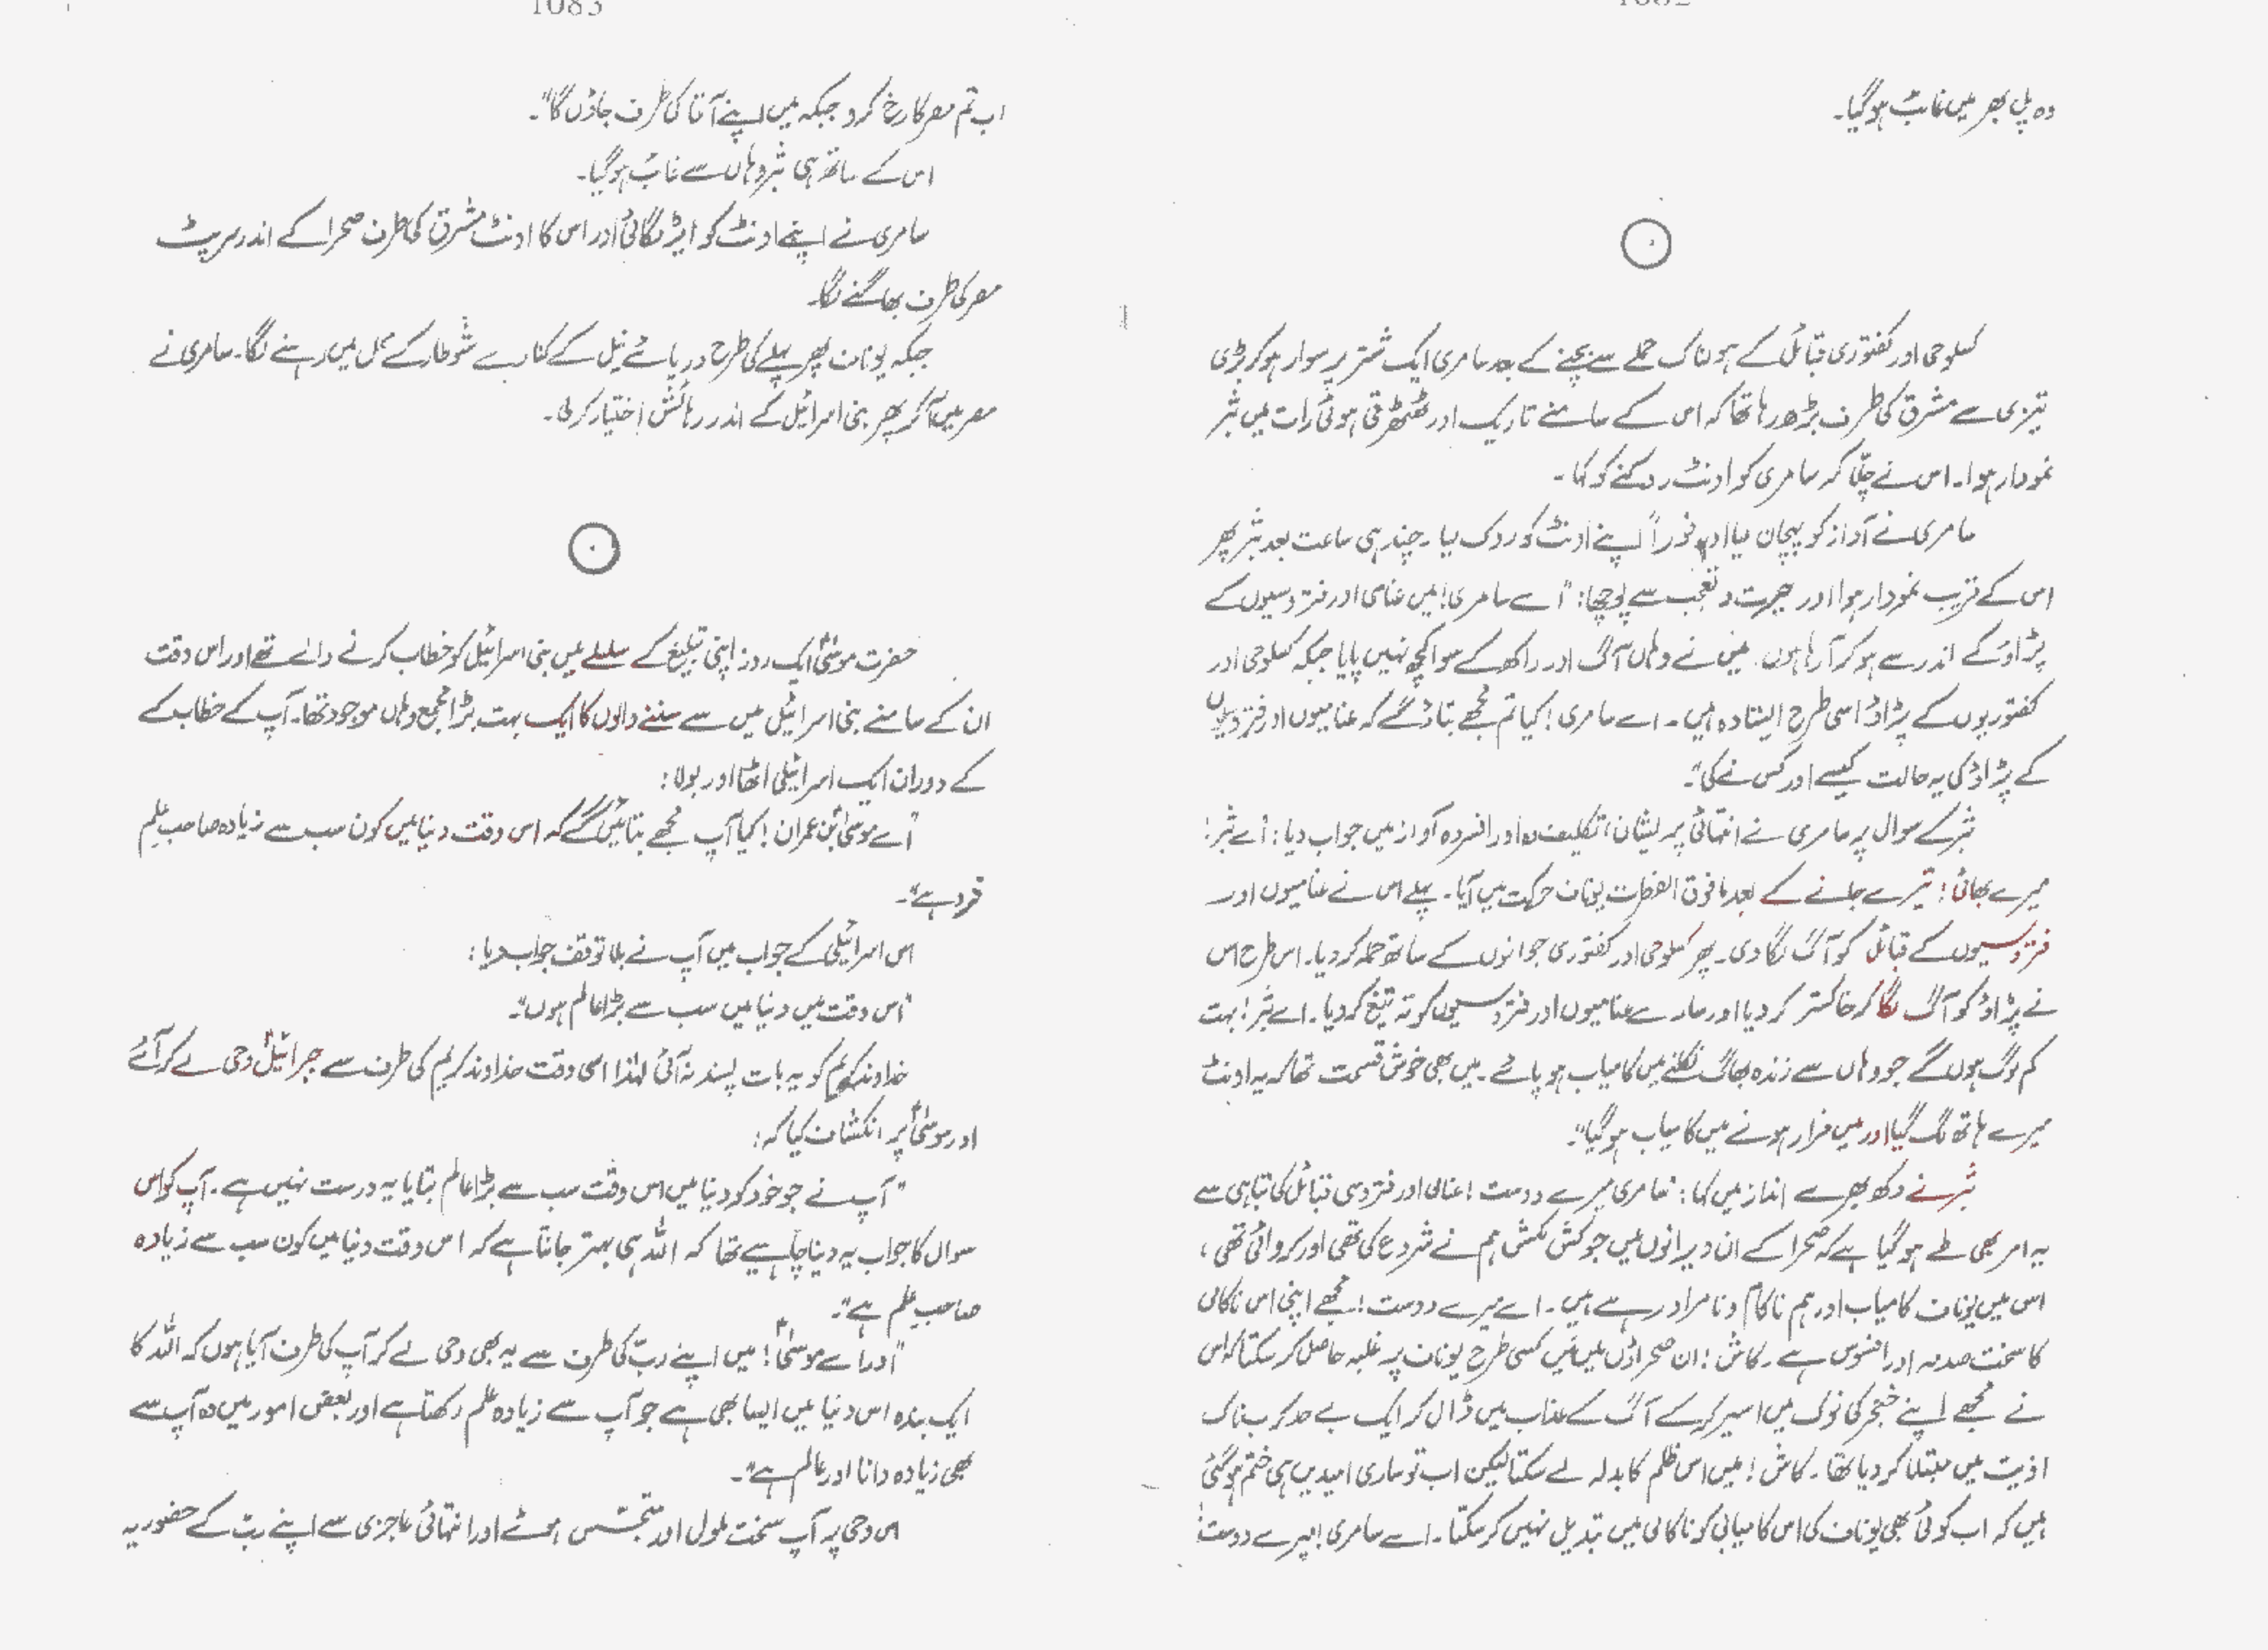 1082
وہ پل بھر میں غائب ہو گیا۔
کسلوحی اور کفتوری قبائل کے ہولناک حملے سے بچنے کے بعد سامری ایک شتر پر سوار ہو کر بڑی
تیزی سے مشرق کی طرف بڑھ رہا تھا کہ اس کے سامنے تاریک اور ٹھٹھرتی ہوئی رات میں ثبر
نمودار ہوا۔ اس نے چلّا کر سامری کو اونٹ روکنے کو کہا۔
سامری نے آواز کو پہچان لیا اور فوراً اپنے اونٹ کو روک لیا۔ چند ہی ساعت بعد ثبر پھر
اس کے قریب نمودار ہوا اور حیرت و تعجب سے پوچھا: "اے سامری! میں عنامی اور فتروسیوں کے
پڑاؤ کے اندر سے ہو کر آ رہا ہوں۔ میں نے وہاں آگ اور راکھ کے سوا کچھ نہیں پایا جبکہ کسلوحی اور
کفتوریوں کے پڑاؤ اسی طرح ایستادہ ہیں۔ اے سامری! کیا تم مجھے بتاؤ گے کہ عنامیوں اور فتروسیوں
کے پڑاؤ کی یہ حالت کیسے اور کس نے کی"۔
ثبر کے سوال پر سامری نے انتہائی پریشان، تکلیف دہ اور افسردہ آواز میں جواب دیا: "اے ثبر!
میرے بھائی! تیرے جانے کے بعد مافوق الفطرت یوناف حرکت میں آیا۔ پہلے اس نے عنامیوں اور
فتروسیوں کے قبائل کو آگ لگا دی۔ پھر کسلوحی اور کفتوری جوانوں کے ساتھ حملہ کر دیا۔ اس طرح اس
نے پڑاؤ کو آگ لگا کر خاکستر کر دیا اور سارے عنامیوں اور فتروسیوں کو تہ تیغ کر دیا۔ اے ثبر! بہت
کم لوگ ہوں گے جو وہاں سے زندہ بھاگ نکلنے میں کامیاب ہو پائے۔ میں بھی خوش قسمت تھا کہ یہ اونٹ
میرے ہاتھ لگ گیا اور میں فرار ہونے میں کامیاب ہو گیا"۔
ثبر نے دکھ بھرے انداز میں کہا: "سامری میرے دوست! عنامی اور فتروسی قبائل کی تباہی سے
یہ امر بھی طے ہو گیا ہے کہ صحرا کے ان ویرانوں میں جو کش مکش ہم نے شروع کی تھی اور کروائی تھی،
اس میں یوناف کامیاب اور ہم ناکام و نامراد رہے ہیں۔ اے میرے دوست! مجھے اپنی اس ناکامی
کا سخت صدمہ اور افسوس ہے۔ کاش! ان صحراؤں میں میں کسی طرح یوناف پر غلبہ حاصل کر سکتا کہ اس
نے مجھے اپنے خنجر کی نوک میں اسیر کر کے آگ کے عذاب میں ڈال کر ایک بے حد کربناک
اذیت میں مبتلا کر دیا تھا۔ کاش! میں اس ظلم کا بدلہ لے سکتا لیکن اب تو ساری امیدیں ہی ختم ہو گئی
ہیں کہ اب کوئی بھی یوناف کی اس کامیابی کو ناکامی میں تبدیل نہیں کر سکتا۔ اے سامری! میرے دوست!
1083
اب تم مصر کا رخ کرو جبکہ میں اپنے آقا کی طرف جاؤں گا"۔
اس کے ساتھ ہی ثبر وہاں سے غائب ہو گیا۔
سامری نے اپنے اونٹ کو ایڑ لگائی اور اس کا اونٹ مشرق کی طرف صحرا کے اندر سرپٹ
مصر کی طرف بھاگنے لگا۔
جبکہ یوناف پھر پہلے کی طرح دریائے نیل کے کنارے شوطار کے محل میں رہنے لگا۔ سامری نے
مصر میں آ کر پھر بنی اسرائیل کے اندر رہائش اختیار کر لی۔
حضرت موسیٰؑ ایک روز اپنی تبلیغ کے سلسلے میں بنی اسرائیل کو خطاب کرنے والے تھے اور اس وقت
ان کے سامنے بنی اسرائیل میں سے سننے والوں کا ایک بہت بڑا مجمع وہاں موجود تھا۔ آپ کے خطاب کے
کے دوران ایک اسرائیلی اٹھا اور بولا:
"اے موسیٰؑ بن عمران! کیا آپ مجھے بتائیں گے کہ اس وقت دنیا میں کون سب سے زیادہ صاحبِ علم
فرد ہے"۔
اس اسرائیلی کے جواب میں آپ نے بلا توقف جواب دیا:
"اس وقت میں دنیا میں سب سے بڑا عالم ہوں"۔
خداوند کریم کو یہ بات پسند نہ آئی لہٰذا اسی وقت خداوند کریم کی طرف سے جبرائیلؑ وحی لے کر آئے
اور موسیٰؑ پر انکشاف کیا کہ:
"آپ نے جو خود کو دنیا میں اس وقت سب سے بڑا عالم بتایا یہ درست نہیں ہے۔ آپ کو اس
سوال کا جواب یہ دینا چاہیے تھا کہ اللہ ہی بہتر جانتا ہے کہ اس وقت دنیا میں کون سب سے زیادہ
صاحبِ علم ہے"۔
"اور اے موسیٰؑ! میں اپنے ربّ کی طرف سے یہ بھی وحی لے کر آپ کی طرف آیا ہوں کہ اللہ کا
ایک بندہ اس دنیا میں ایسا بھی ہے جو آپ سے زیادہ علم رکھتا ہے اور بعض امور میں وہ آپ سے
بھی زیادہ دانا اور عالم ہے"۔
اس وحی پر آپ سخت ملول اور متجسّس ہوئے اور انتہائی عاجزی سے اپنے ربّ کے حضور یہ